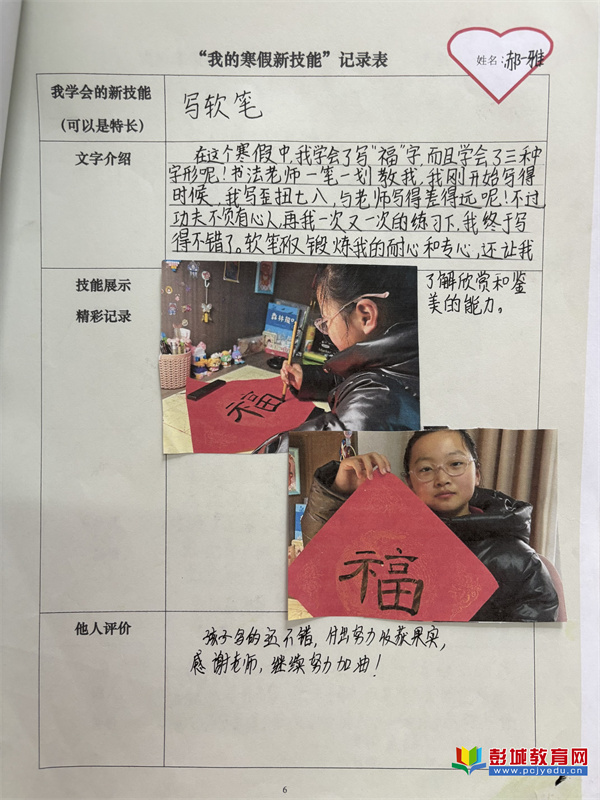 “我的寒假新技能”记录表
姓名：郝一雅
我学会的新技能
（可以是特长）
写软笔
文字介绍
在这个寒假中，我学会了写“福”字，而且学会了三种
字形呢！书法老师一笔一划教我，我刚开始写得
时候，我写歪扭七八，与老师写得差得远呢！不过
功夫不负有心人，再我一次又一次的练习下，我终于写
得不错了。软笔不仅锻炼我的耐心和专心，还让我
了解欣赏和鉴
美的能力。
技能展示
精彩记录
福
福
他人评价
孩子写的不错，付出努力收获果实，
感谢老师，继续努力加油！
6
彭城教育网
www.pcjyedu.cn